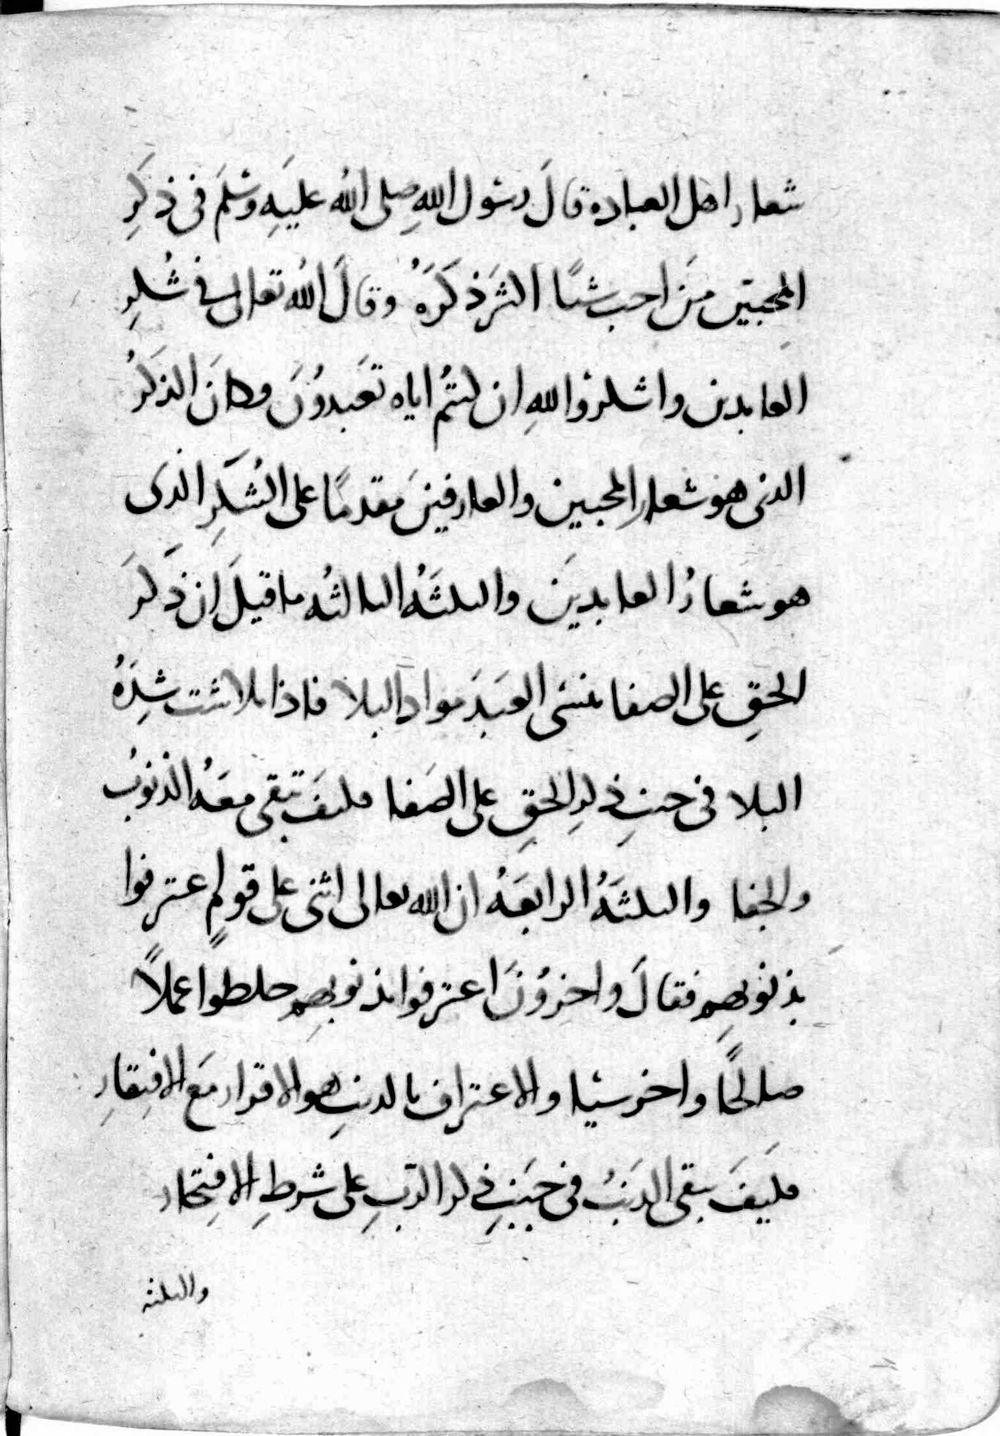 شعار اهل العباده قالَ رسُول اللهِ صلى اللهُ عليَهِ وسَلمَ فى ذكَرِ
المحبتين مَن احب شيًا اكثَرَ ذكَرَهُ وقالَ اللهُ تعالى فى شُكرِ
العابدين واشكرُوا للهِ ان كنتُم اياه تعَبدوُنَ وكانَ الذكرُ
الذى هو شعار المحبين والعارفينَ مقدمًا على الشكَرِ الذى
هو شعارُ العابدينَ والنكتَهُ الثالثُه ما قيلَ ان ذكَرَ
الحقِ على الصفا ينسى العبَدَ مواد البلا فاذا تلاشت شِدَهُ
البلا فى جنبِ ذكرِ الحقِ على الصَفا فكيفَ تبقى معَهُ الذنوبُ
والجفا والنكتَهُ الرابعَهُ ان الله تعالى اثنى على قومٍ اعترفوا
بذنوبهِم فقالَ واخروُنَ اعترفوا بذنوبهِم خلطواً عملاً
صالحًا واخر سيئا والاعتراف بالذنبِ هو الاقرار مَع الافتِقارِ
فكَيفَ يبقى الذنَبُ فى جنَبِ ذكر الربِ على شرطِ الافتِخار
والنكتة